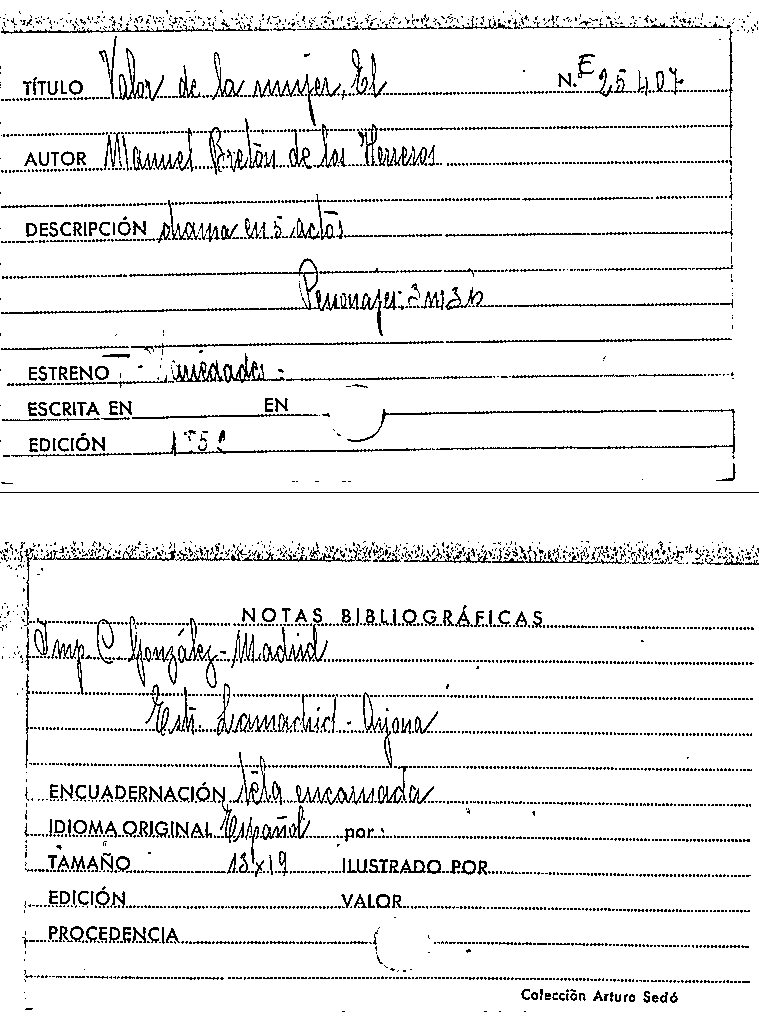 TÍTULO Valor de la mujer, El N.E 25407
AUTOR Manuel Bretón de los Herreros
DESCRIPCIÓN drama en 5 actos
Personajes: 3m 3h
ESTRENO T - Variedades -
ESCRITA EN EN
EDICIÓN 1852
NOTAS BIBLIOGRÁFICAS
Imp. C. González - Madrid
Estr. Lamadrid - Arjona
ENCUADERNACIÓN tela encarnada
IDIOMA ORIGINAL Español por:
TAMAÑO 13x19 ILUSTRADO POR
EDICIÓN VALOR
PROCEDENCIA
Colección Arturo Sedó